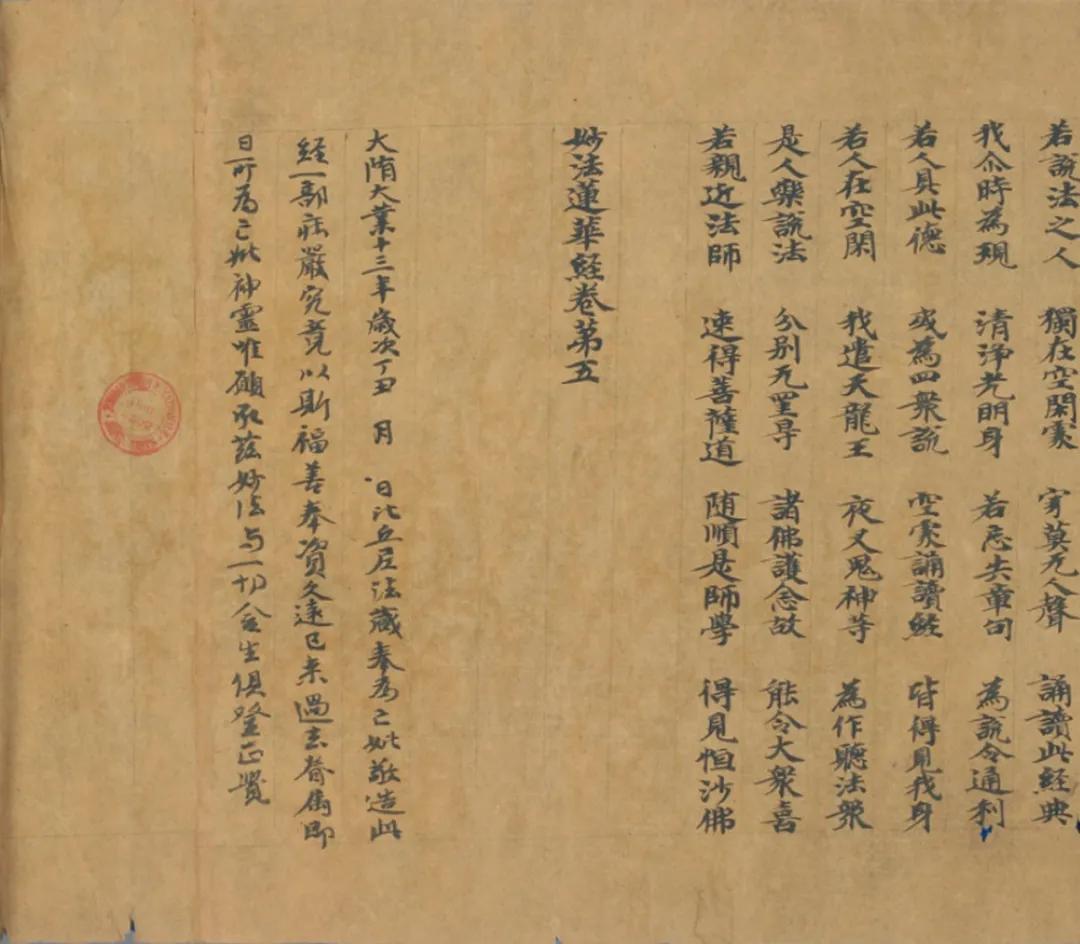 若說法之人 獨在空閑處 寂莫无人聲 誦讀此經典
我尒時為現 清淨光明身 若忘失章句 為說令通利
若人具此德 或為四衆說 空處誦讀經 皆得見我身
若人在空閑 我遣天龍王 夜叉鬼神等 為作聽法衆
是人樂說法 分別无罣㝵 諸佛護念故 能令大衆喜
若親近法師 速得菩薩道 随順是師學 得見恒沙佛
妙法蓮華經卷第五
大隋大業十三年歳次丁丑 月 日比丘尼法藏奉為亡妣敬造此
經一部莊嚴究竟以斯福善奉資久遠已来過去眷屬即
日所為亡妣神靈唯願承茲妙法与一切含生俱登正覺